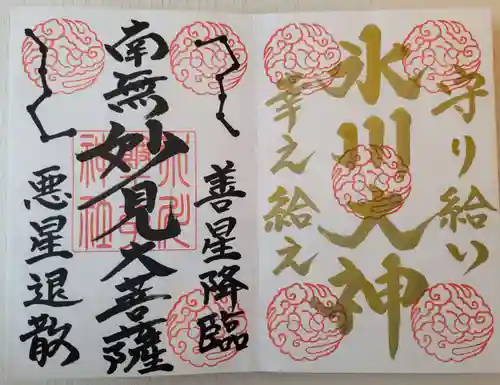 守り給い
氷川大神
幸え給え
善星降臨
南無妙見大菩薩
悪星退散